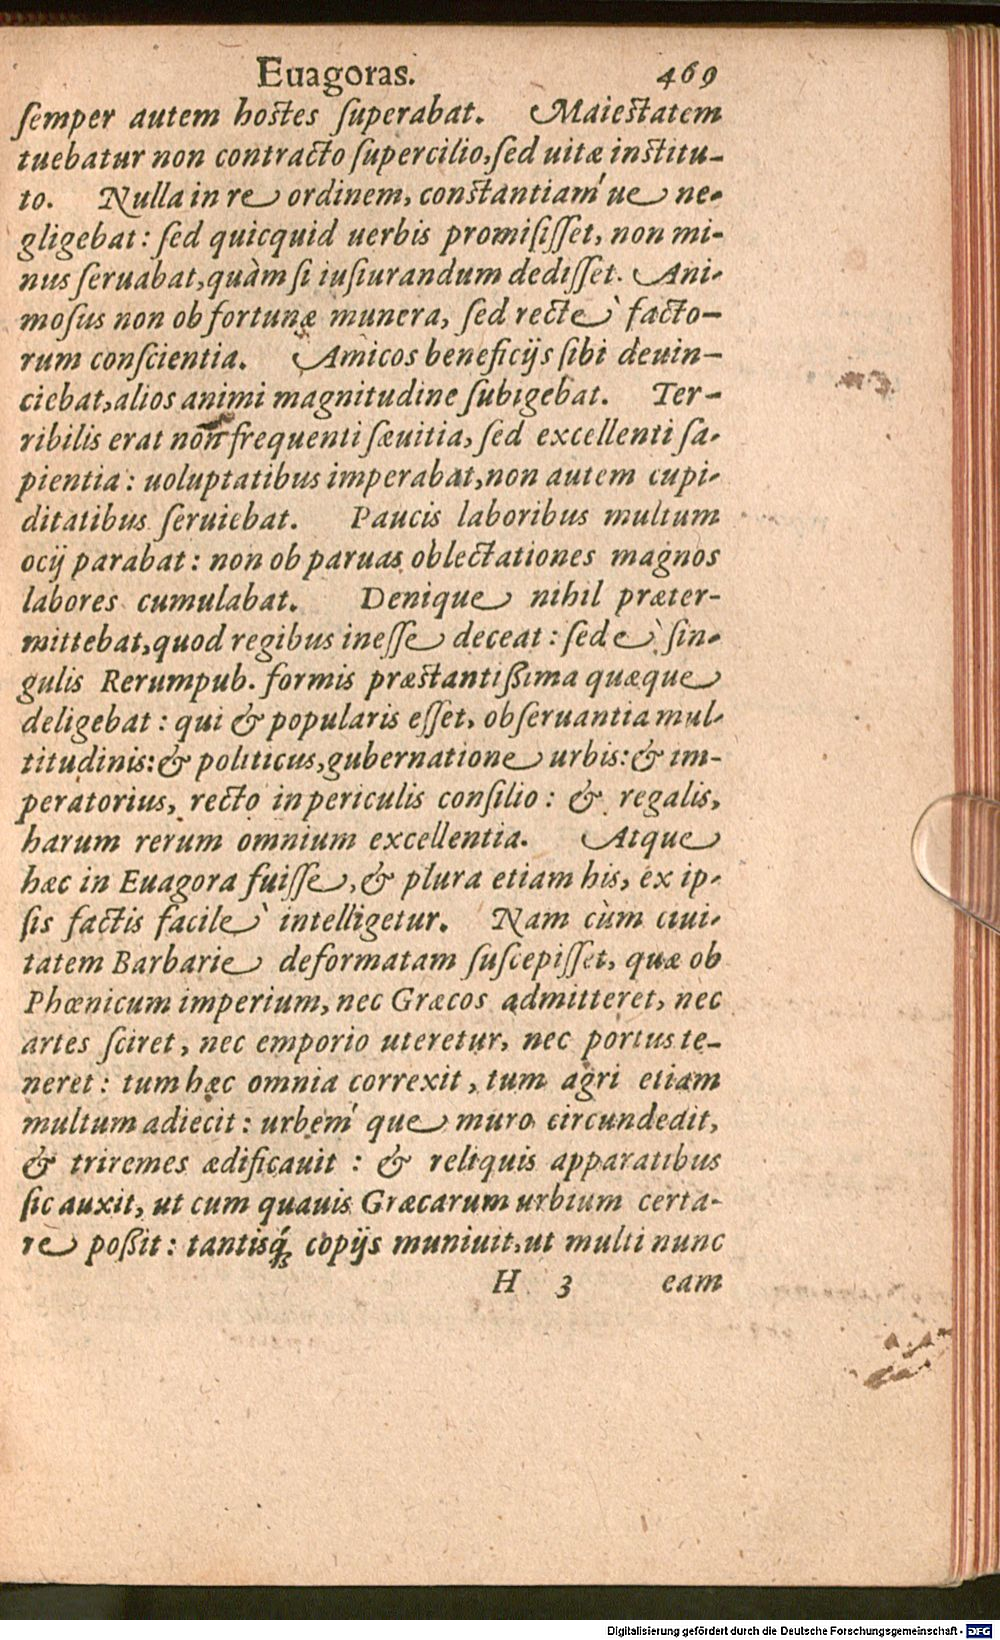 Euagoras. 469
ſemper autem hoſtes ſuperabat. Maieſtatem
tuebatur non contracto ſupercilio, ſed uitæ inſtitu-
to. Nulla in re ordinem, conſtantiaḿ ue ne-
gligebat: ſed quicquid uerbis promiſiſſet, non mi-
nus ſeruabat, quàm ſi iuſiurandum dediſſet. Ani-
moſus non ob fortunæ munera, ſed rectè facto-
rum conſcientia. Amicos beneficijs ſibi deuin-
ciebat, alios animi magnitudine ſubigebat. Ter-
ribilis erat non frequenti ſæuitia, ſed excellenti ſa-
pientia: uoluptatibus imperabat, non autem cupi-
ditatibus ſeruiebat. Paucis laboribus multum
ocij parabat: non ob paruas oblectationes magnos
labores cumulabat. Denique nihil præter-
mittebat, quod regibus ineſſe deceat: ſed è ſin-
gulis Rerumpub. formis præſtantißima quæque
deligebat: qui & popularis eſſet, obſeruantia mul-
titudinis: & politicus, gubernatione urbis: & im-
peratorius, recto in periculis conſilio: & regalis,
harum rerum omnium excellentia. Atque
hæc in Euagora fuiſſe, & plura etiam his, ex ip-
ſis factis facilè intelligetur. Nam cùm ciui-
tatem Barbarie deformatam ſuſcepiſſet, quæ ob
Phœnicum imperium, nec Græcos admitteret, nec
artes ſciret, nec emporio uteretur, nec portus te-
neret: tum hæc omnia correxit, tum agri etiam
multum adiecit: urbeḿ que muro circundedit,
& triremes ædificauit: & reliquis apparatibus
ſic auxit, ut cum quauis Græcarum urbium certa-
re poßit: tantisq́; copijs muniuit, ut multi nunc
H 3 eam
Digitalisierung gefördert durch die Deutsche Forschungsgemeinschaft - DFG